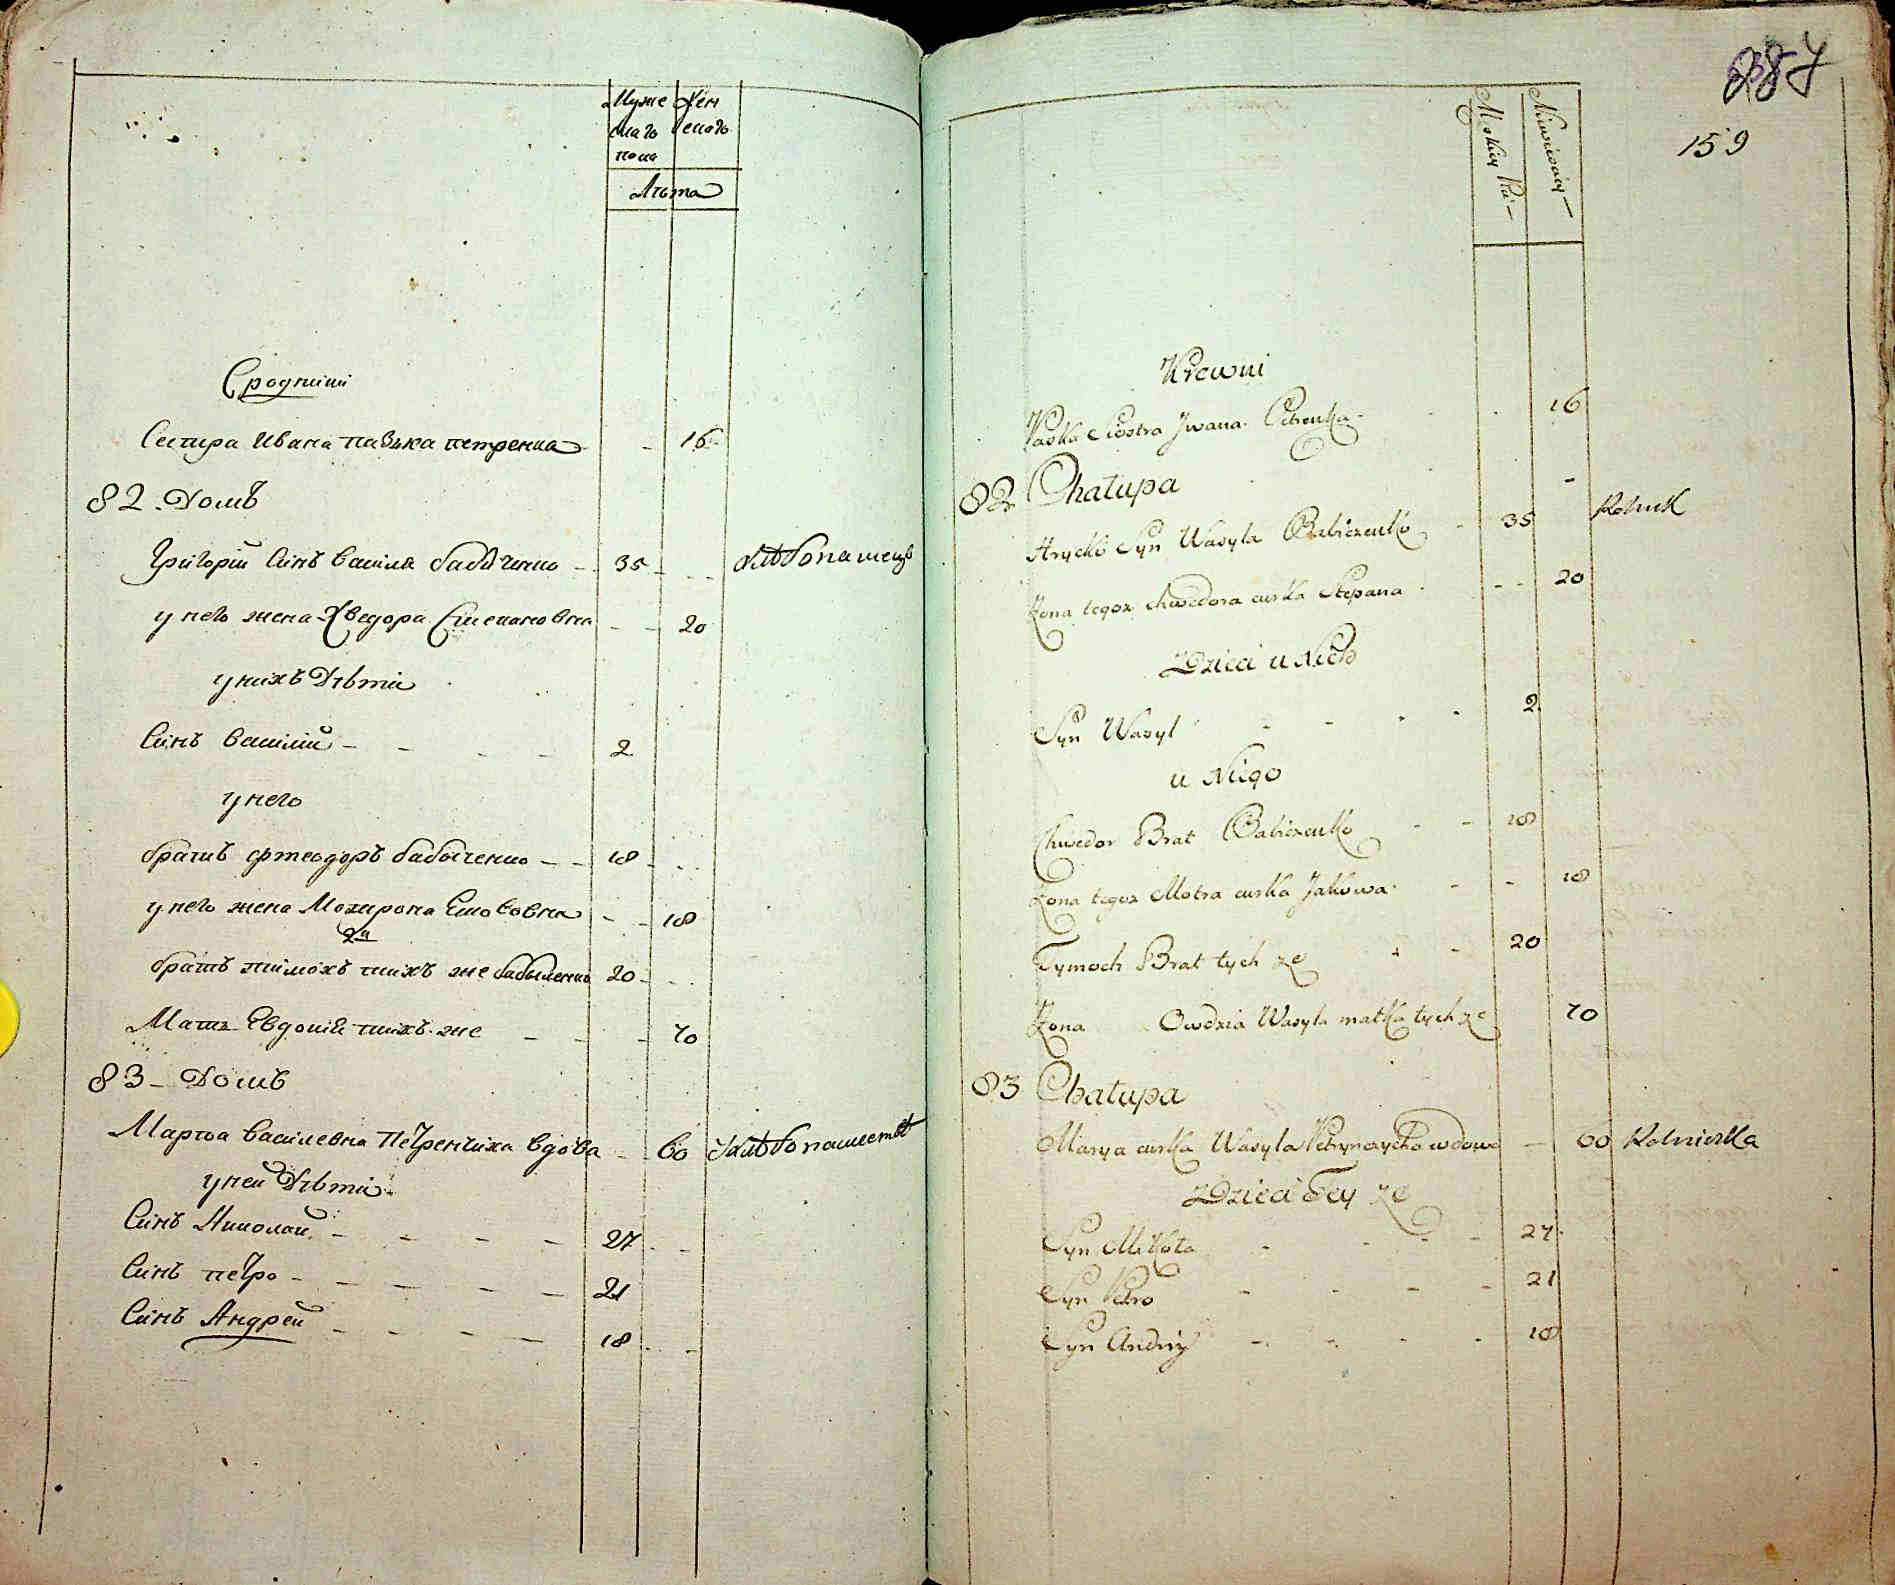 Муже Жен
скаго скаго
пола
Лѣта
Сродники
Сестра Ивана Пазька Петренка - 16
82. Домъ
Григорій Синъ Василя Бабѣченко - 35 - хлѣбопашецъ
у него жена Хведора Степановна - - 20
у нихъ Дѣти
Синъ Василій - - - - 2
у него
братъ Фтеодоръ Бабыченко - - 18 -
у него жена Мокрона - - 18
2й
братъ Тимохъ тихъ же Бабыченко 20 -
Мать Евдокія тихъ же - - - 70
83 - Домъ
Марфа Василевна Петренчиха вдова - 60
у ней Дѣти
Синъ Николай - - - - 27 - -
Синъ Петро - - - - - 21
Синъ Андрей - - - - 18 - -
287
159
Krewni
Paska Siostra Jwana Petrenka - 16
82 Chałupa
Hrycko Syn Wasyla Babiczenko - 35 Rolnik
Żona tegoz Chwedora curka Stepana - - 20
Dzieci u Nich
Syn Wasyl - - - - 2
u Niego
Chwedor Brat Babiczenko - - 18
Żona tegoz Motra curka Jakowa - - 18
Tymoch Brat tych ze - - 20
Żona Owdzia Wasyla matka tych ze 70
83 Chałupa
Marya curka Wasyla wdowa - 60 Rolniczka
Dzieci Tey ze
Syn Mikoła - - - - 27
Syn Petro - - - - 21
Syn Andriy - - - - 18